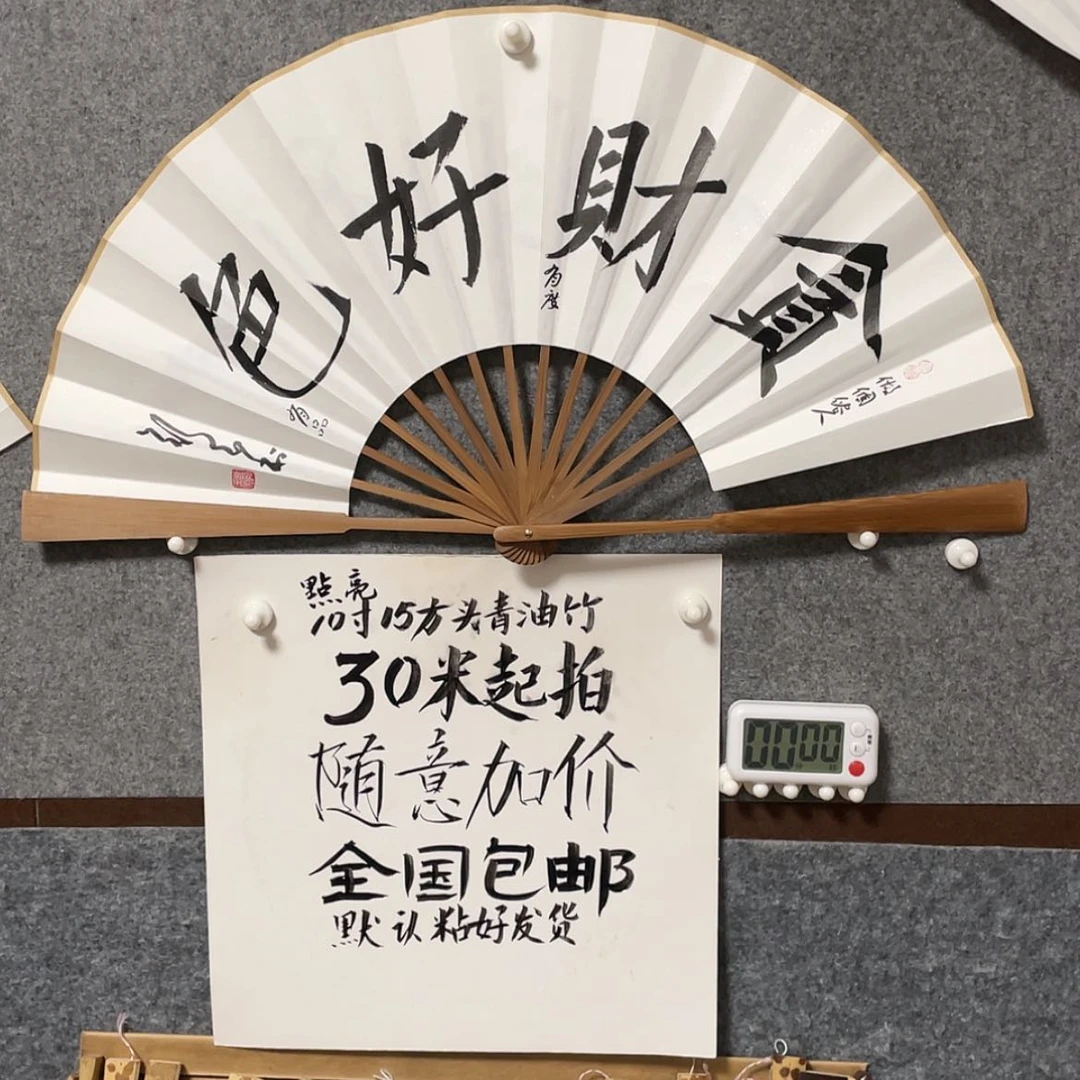 做個俗人
貪財好色
有度
有品
點亮
10寸15方头青油竹
30米起拍
随意加价
全国包邮
默认粘好发货
00 00